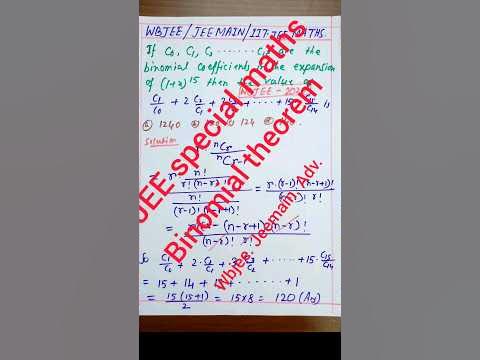 WBJEE/JEE MAIN/IIT-JEE MATHS
If C₀, C₁, C₂ ....... are the
binomial coefficients in the expansion
of (1+x)¹⁵ then the value of
WBJEE-202
C₁/C₀ + 2 C₂/C₁ + + ..... + 15 is
1240 124
Solution
ⁿCᵣ / ⁿCᵣ₋₁
= r · n! / r!(n-r)! / n! / (r-1)!(n-r+1)! = r·(r-1)!(n-r+1)! / r!
= (n-r+1)(n-r)! / (n-r)! r!
So C₁/C₀ + 2·C₂/C₁ + C₃/C₂ + ..... + 15·C₁₅/C₁₄
= 15 + 14 + + ...... + 1
= 15(15+1)/2 = 15×8 = 120 (Ans)
JEE special maths
Binomial theorem
Wbjee, Jeemain, Adv.